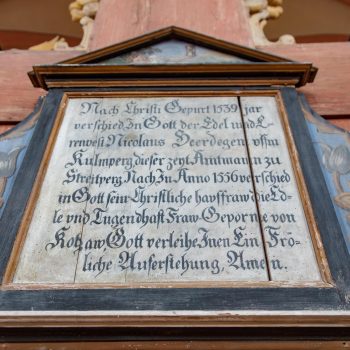 Nach Christi Gepurt 1539 jar
verschied In Gott der Edel und Ern
renvest Nicolaus Heerdegen vfm
Kulmperg dieser zeyt Amtmann zu
Streitperg Nach Im Anno 1556 verschied
in Gott sein Christliche hausfraw die Edle
le vnd Tugendhaft Fraw Geporne von
Kotzaw Gott verleihe Inen Ein Frö-
liche Auferstehung, Amen.